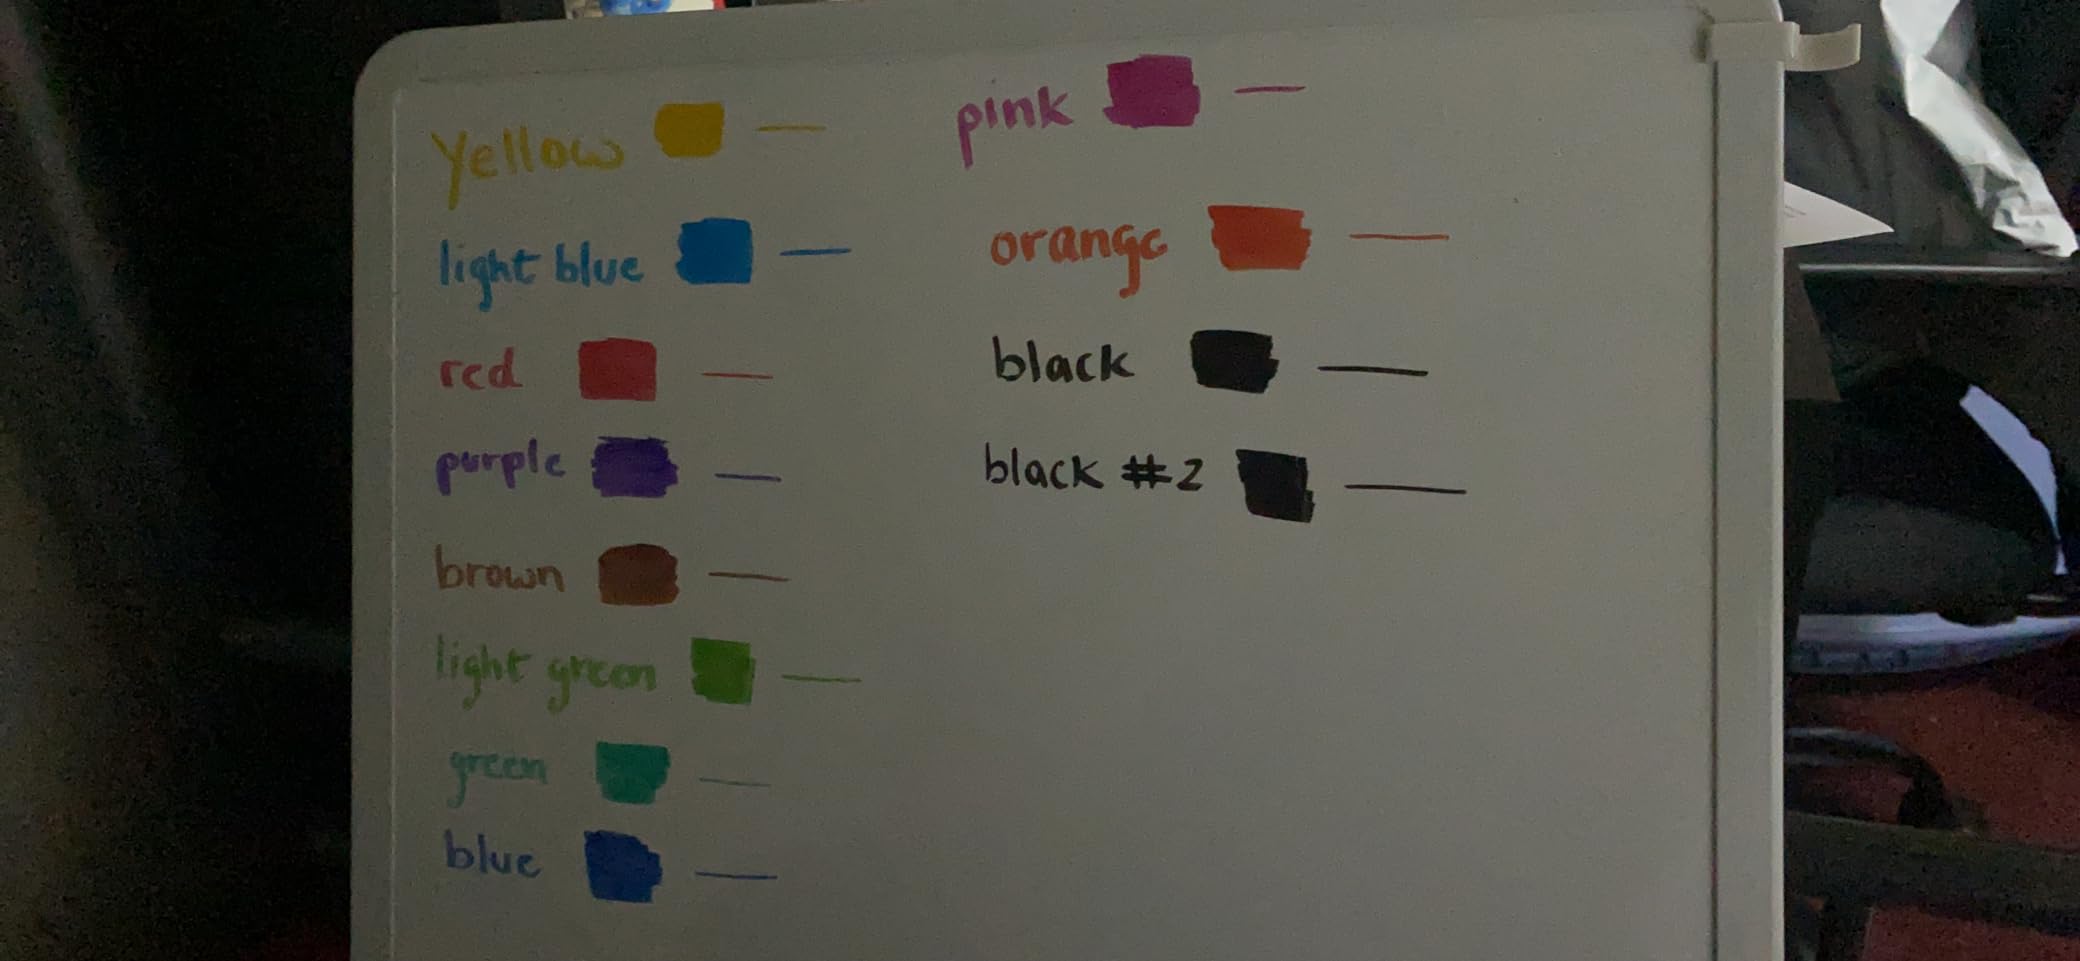 Yellow
light blue
red
purple
brown
light green
green
blue
pink
orange
black
black #2